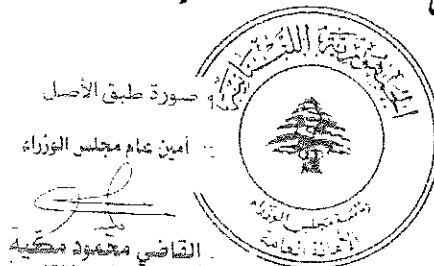 صورة طبق الأصل
أمين عام مجلس الوزراء
القاضي محمود مكية
الجمهورية اللبنانية
رئاسة مجلس الوزراء
الأمانة العامة